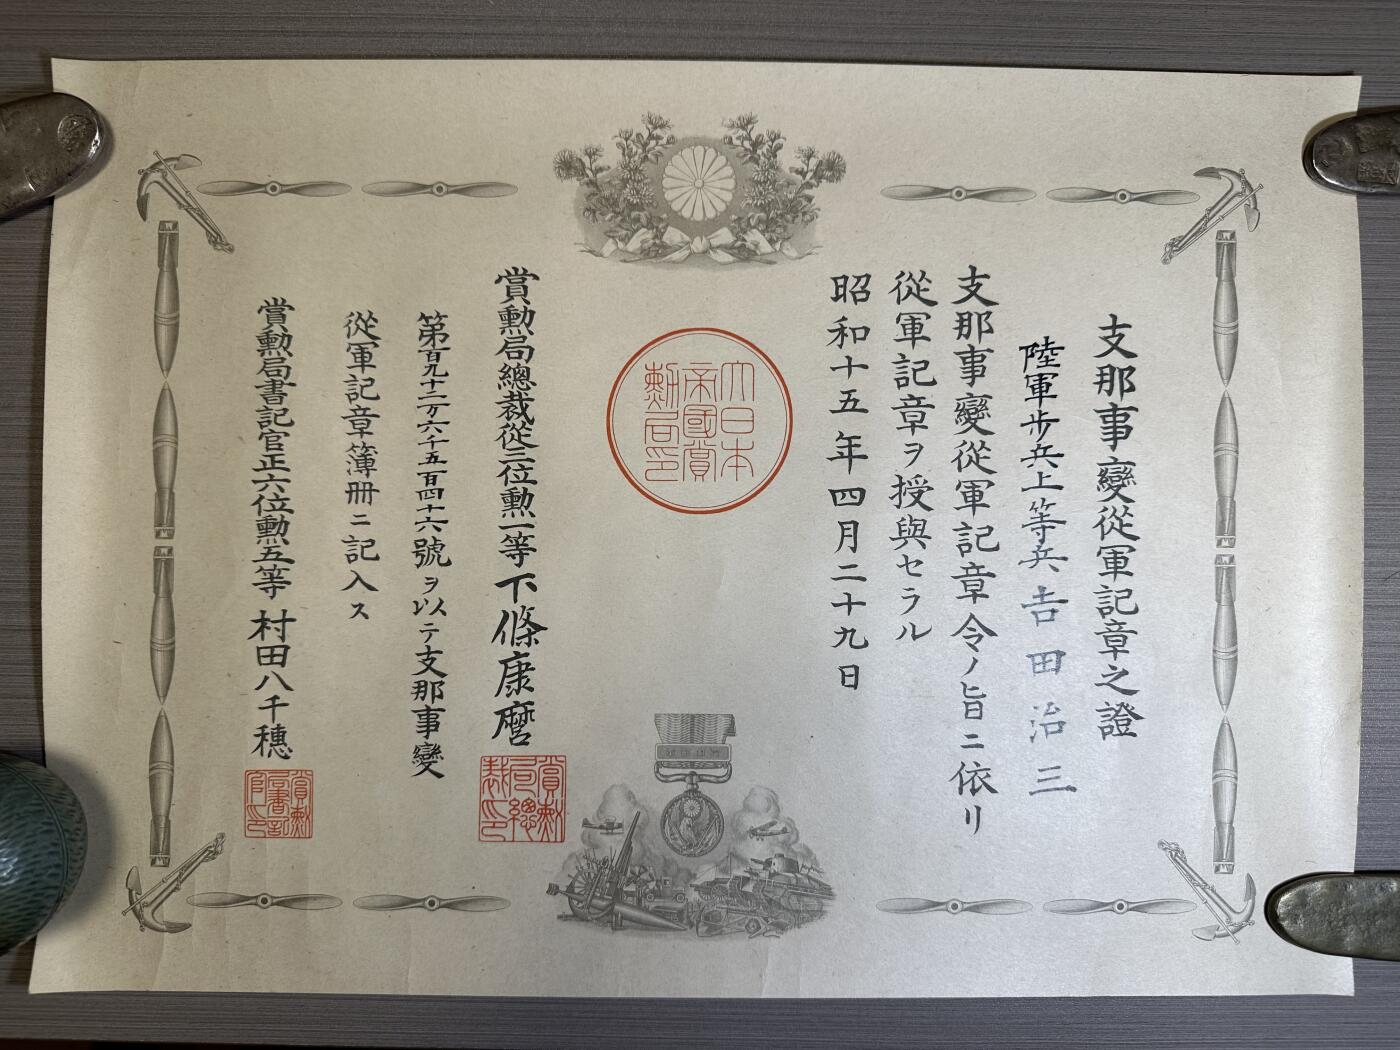 支那事變從軍記章之證
陸軍歩兵上等兵吉田治三
支那事變從軍記章令ノ旨ニ依リ
從軍記章ヲ授與セラル
昭和十五年四月二十九日
大日本
帝國賞
勲局印
賞勲局總裁從三位勲一等下條康麿
賞勲
局總
裁印
第百九十二万六千五百四十六號ヲ以テ支那事變
從軍記章簿冊ニ記入ス
賞勲局書記官正六位勲五等村田八千穗
賞勲
局書記
官印